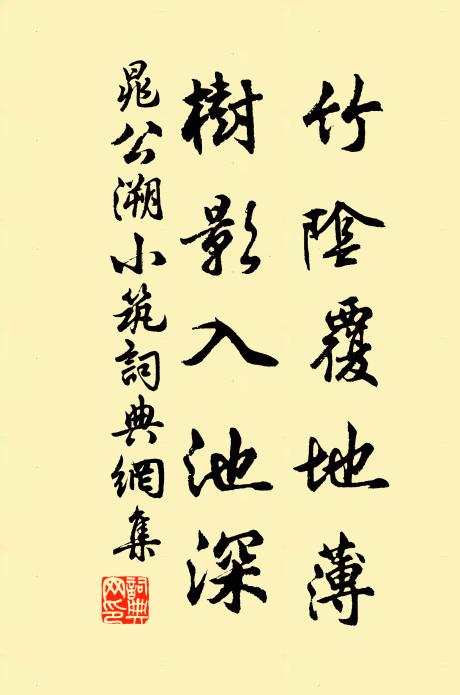 竹陰覆地薄
樹影入池深
晁公溯小筑詞典網集
詞典网印